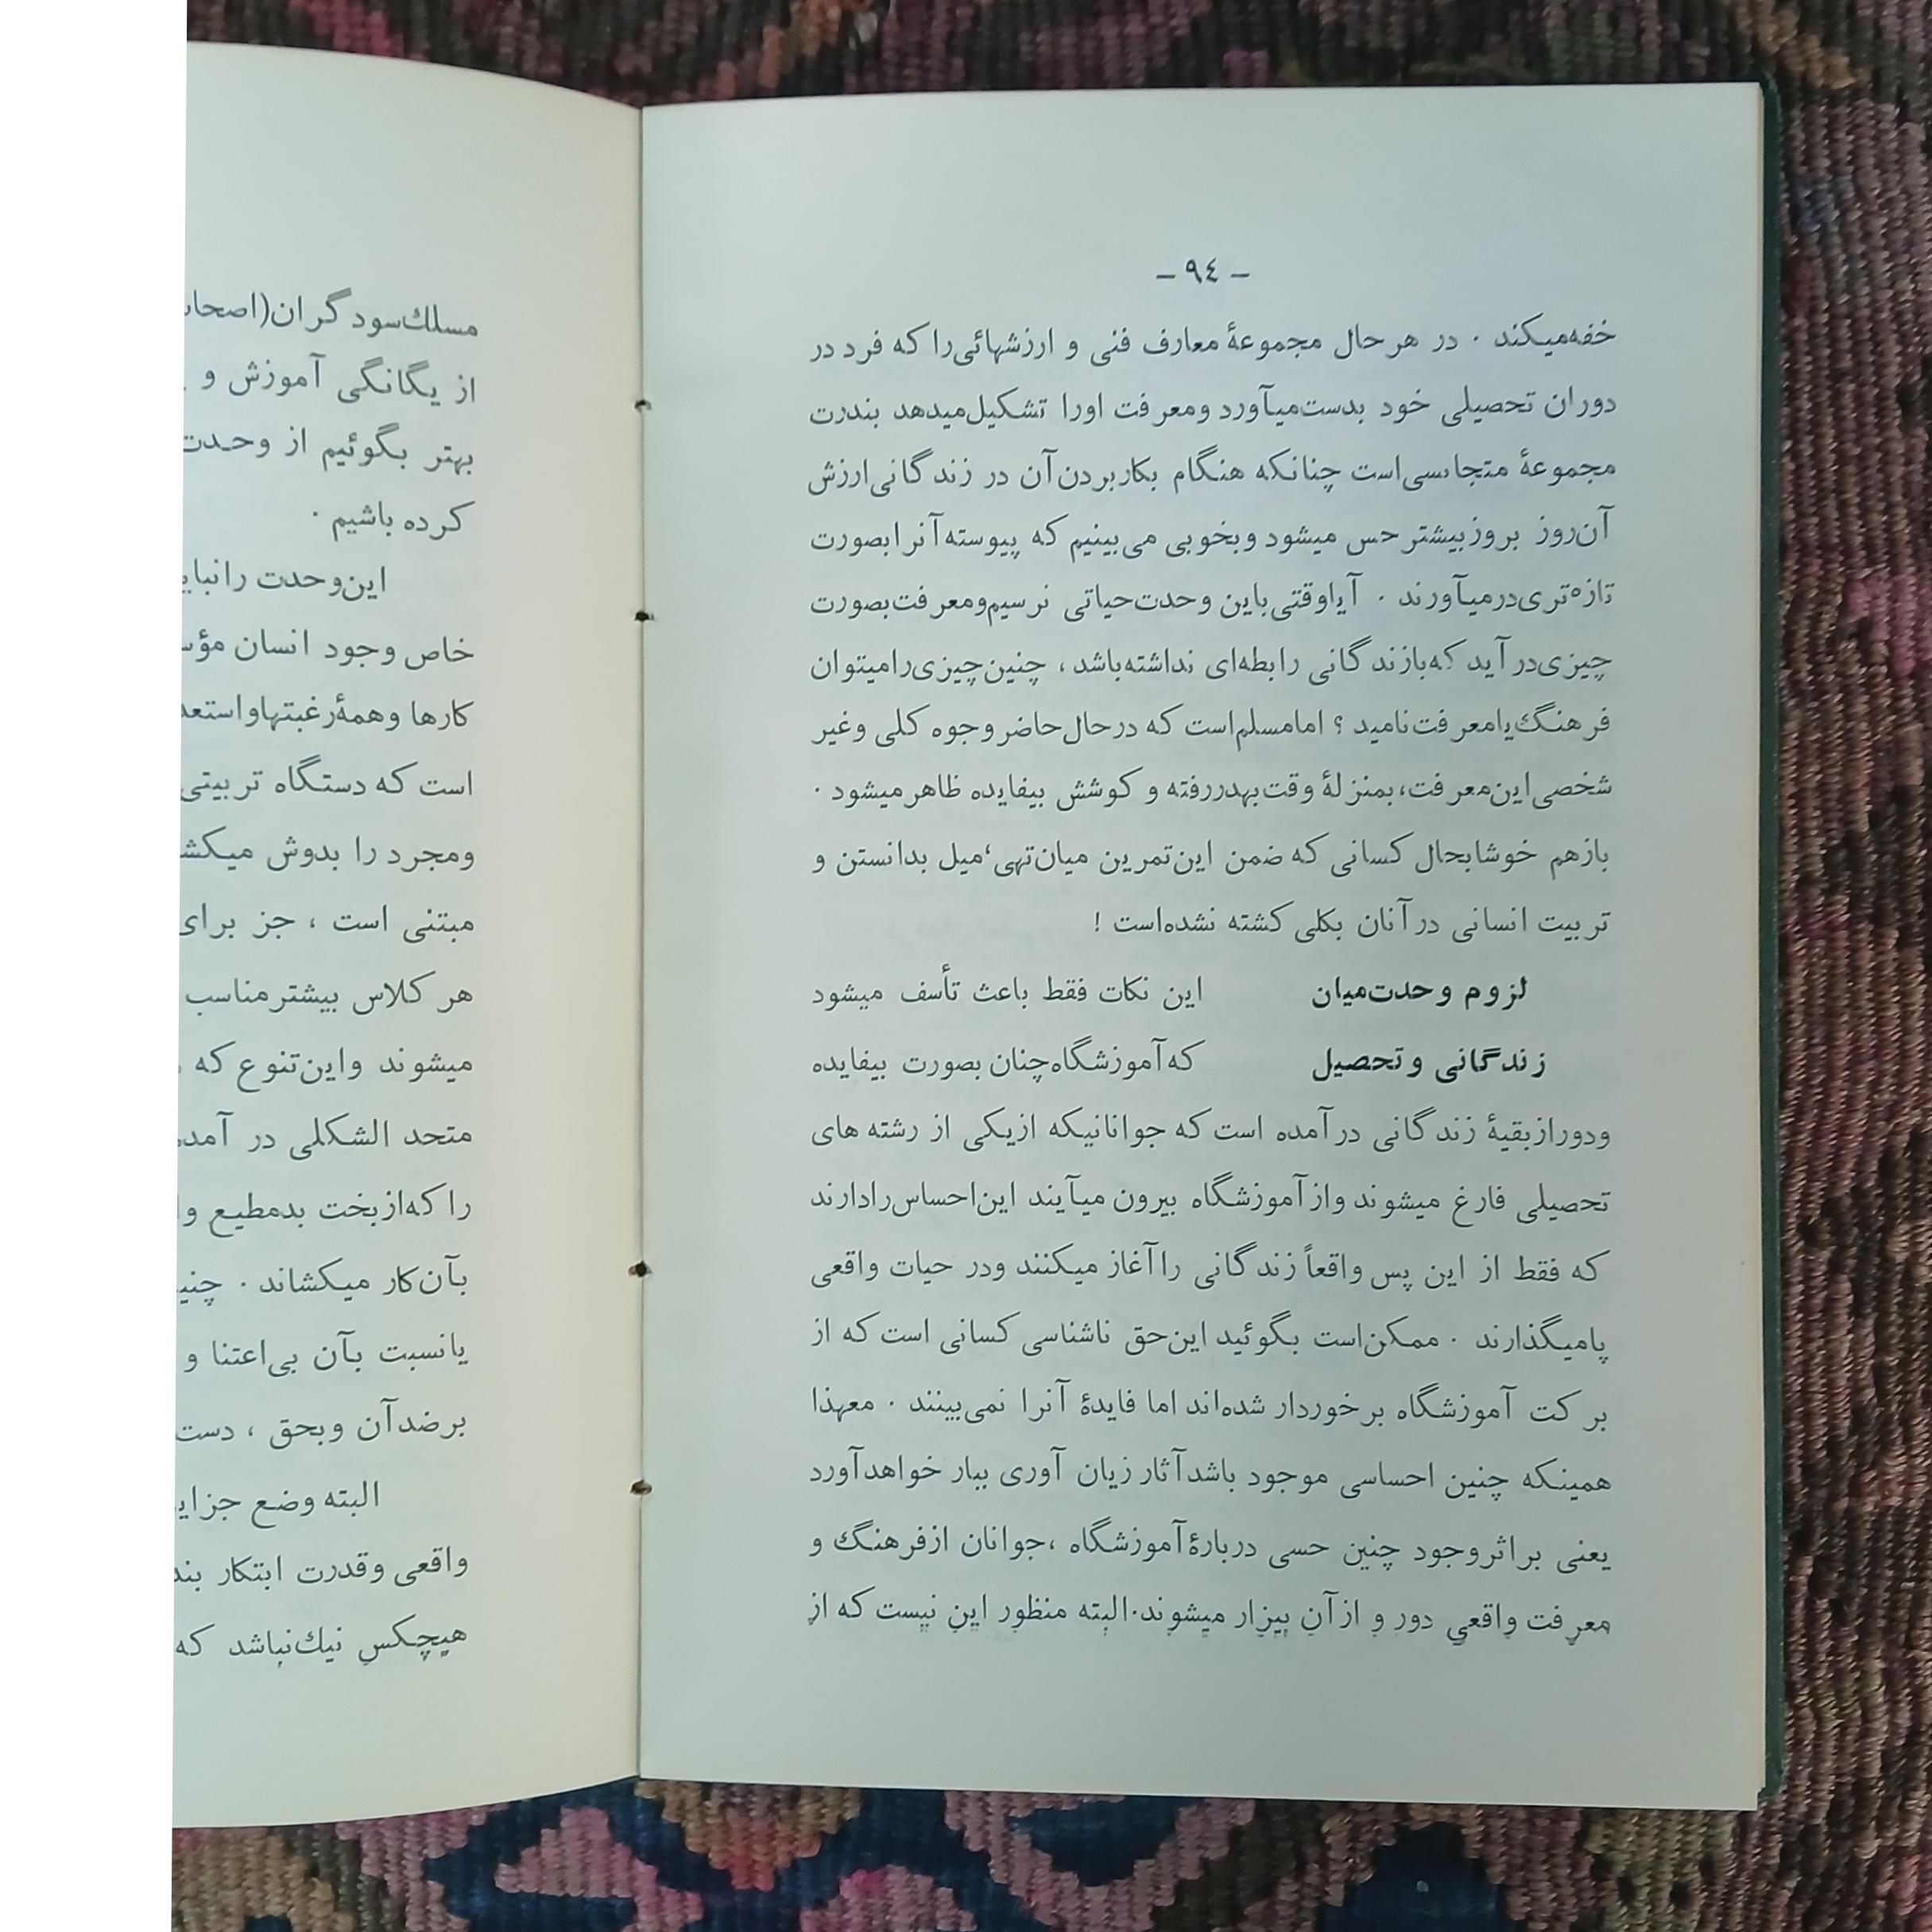 - ٩٤ -
خفه‌میکند . در هرحال مجموعهٔ معارف فنی و ارزشهائی‌را که فرد در
دوران تحصیلی خود بدست‌میآورد ومعرفت اورا تشکیل‌میدهد بندرت
مجموعهٔ متجانسی‌است چنانکه هنگام بکاربردن‌آن در زندگانی‌ارزش
آن‌روز بروزبیشتر حس میشود وبخوبی می‌بینیم که پیوسته‌آنرابصورت
تازه‌تری‌درمیآورند . آیاوقتی‌باین وحدت‌حیاتی نرسیم‌ومعرفت‌بصورت
چیزی‌درآید که‌بازندگانی رابطه‌ای نداشته‌باشد ، چنین‌چیزی‌رامیتوان
فرهنگ‌یامعرفت‌نامید ؟ امامسلم‌است که درحال‌حاضر وجوه کلی وغیر
شخصی‌این‌معرفت،بمنزلهٔ وقت‌بهدررفته و کوشش بیفایده ظاهرمیشود .
بازهم خوشابحال کسانی که ضمن این‌تمرین میان‌تهی،میل بدانستن و
تربیت انسانی درآنان بکلی کشته نشده‌است !
لزوم وحدت‌میان این نکات فقط باعث تأسف میشود
زندگانی وتحصیل که‌آموزشگاه‌چنان بصورت بیفایده
ودورازبقیهٔ زندگانی درآمده است که جوانانیکه ازیکی از رشته های
تحصیلی فارغ میشوند وازآموزشگاه بیرون میآیند این‌احساس‌رادارند
که فقط از این پس واقعاً زندگانی راآغاز میکنند ودر حیات واقعی
پامیگذارند . ممکن‌است بگوئید این‌حق ناشناسی کسانی است که از
برکت آموزشگاه برخوردار شده‌اند اما فایدهٔ آنرا نمی‌بینند . معهذا
همینکه چنین احساسی موجود باشدآثار زیان آوری ببار خواهدآورد
یعنی براثروجود چنین حسی دربارهٔ‌آموزشگاه ،جوانان ازفرهنگ و
معرفت واقعی دور و ازآن بیزار میشوند.البته منظور این نیست که از
مسلك‌سودگران(
از یگانگی آموزش و
بهتر بگوئیم از وحدت
کرده باشیم .
این‌وحدت
خاص وجود انسان
کارها وهمهٔ‌رغبتها
است که دستگاه تربیتی
ومجرد را بدوش
مبتنی است ، جز برای
هر کلاس بیشترمناسب
میشوند واین‌تنوع که
متحد الشکلی در
را که‌ازبخت بدمطیع
بآن‌کار میکشاند .
یانسبت بآن بی‌اعتنا و
برضدآن وبحق ، دست
البته وضع
واقعی وقدرت ابتکار
هیچکس نیك‌نباشد که